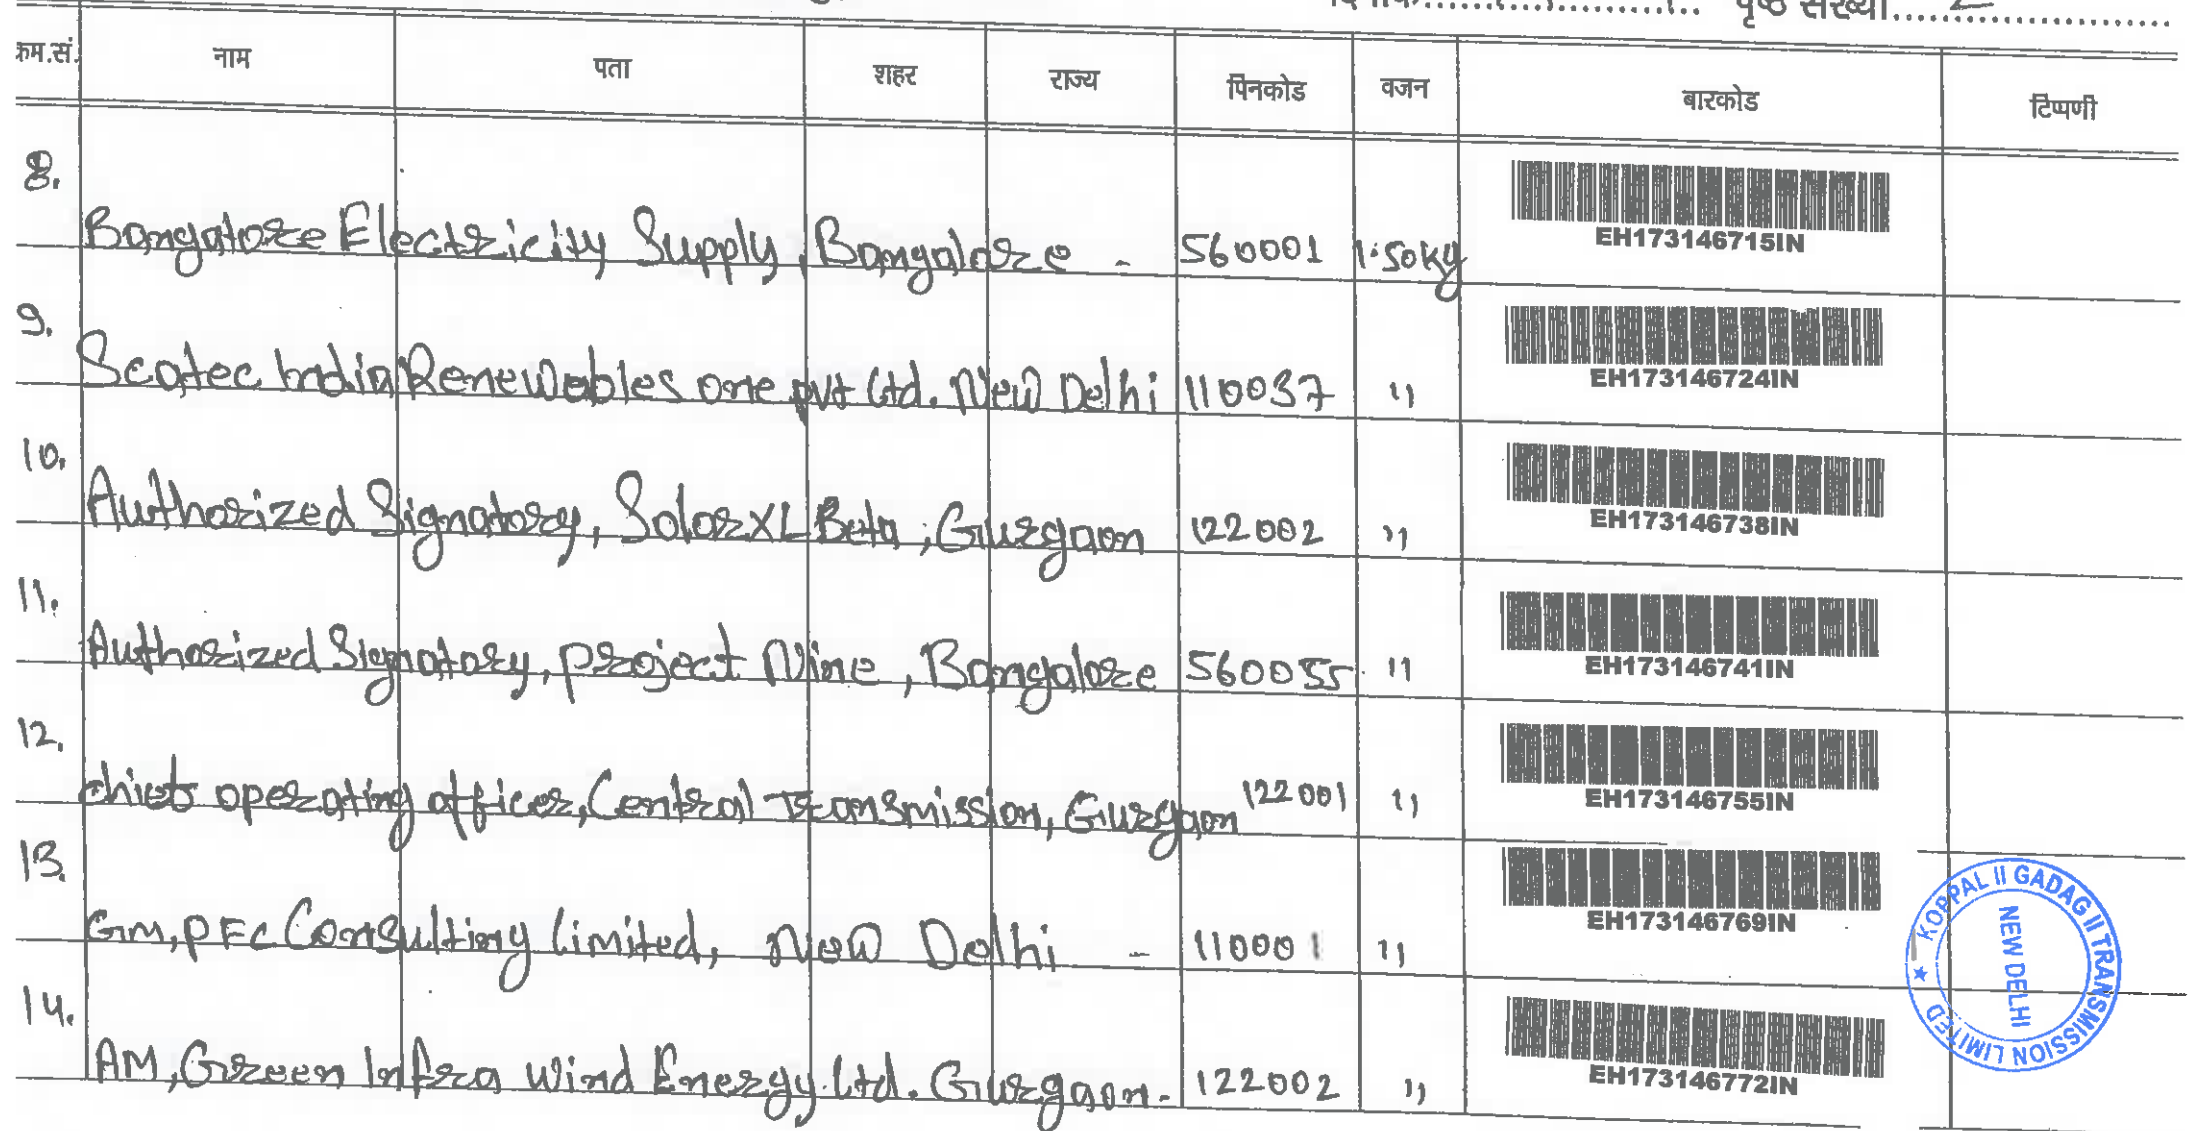 दिनांक.................... पृष्ठ संख्या....2....................
क्रम.सं. नाम पता शहर राज्य पिनकोड वजन बारकोड टिप्पणी
8. Bangalore Electricity Supply, Bangalore - 560001 1.50kg EH173146715IN
9. Scatec India Renewables one pvt Ltd. New Delhi 110037 " EH173146724IN
10. Authorized Signatory, Solar XL Beta, Gurgaon 122002 " EH173146738IN
11. Authorized Signatory, project Nine, Bangalore 560055 " EH173146741IN
12. chief operating officer, Central Transmission, Gurgaon 122001 " EH173146755IN
13. GM, PFC Consulting limited, New Delhi - 110001 " EH173146769IN
14. AM, Green Infra Wind Energy Ltd. Gurgaon. 122002 " EH173146772IN
KOPPAL II GADAG II TRANSMISSION LIMITED ★
NEW DELHI